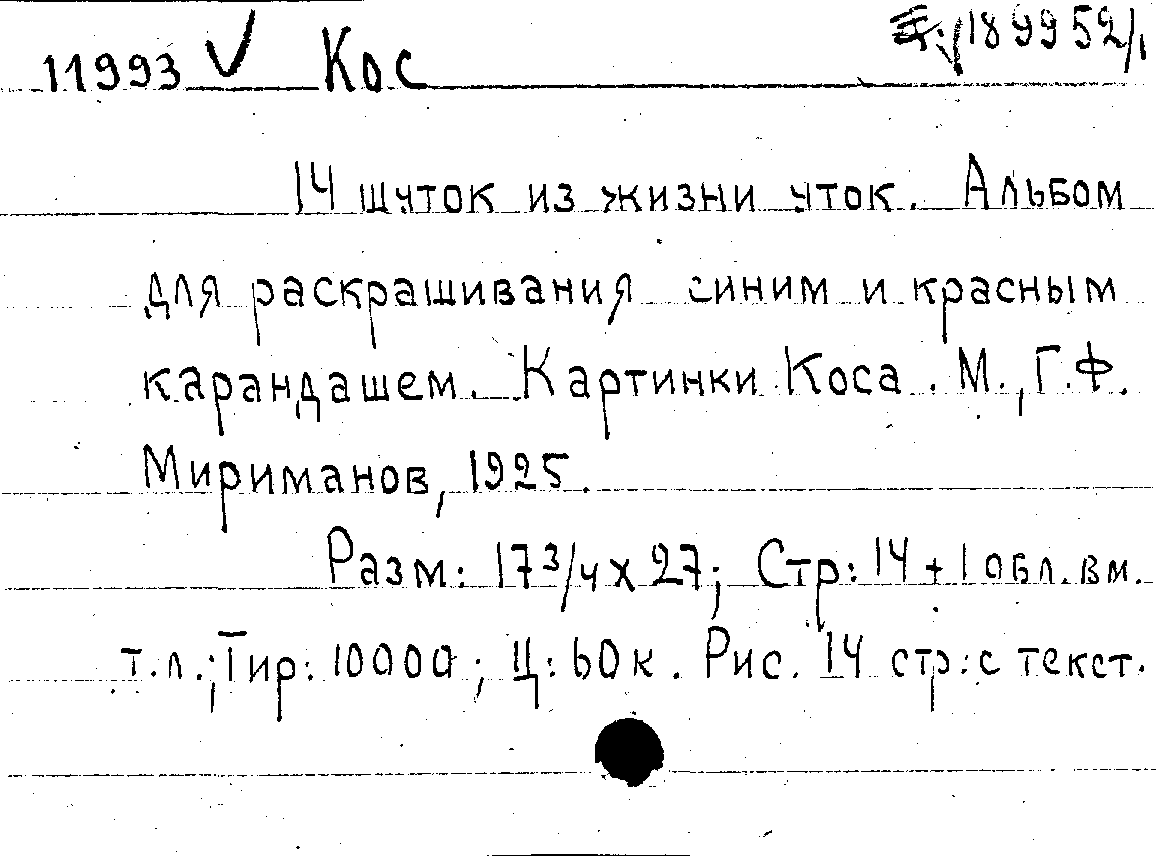 11993 √ Кос 189952/1
14 шуток из жизни уток. Альбом
для раскрашивания синим и красным
карандашем. Картинки Коса. М., Г.Ф.
Мириманов, 1925.
Разм: 17 3/4 x 27; Стр: 14 + 1 обл. вм.
т.л.; Тир: 10000; Ц: 60 к. Рис. 14 стр: с текст.